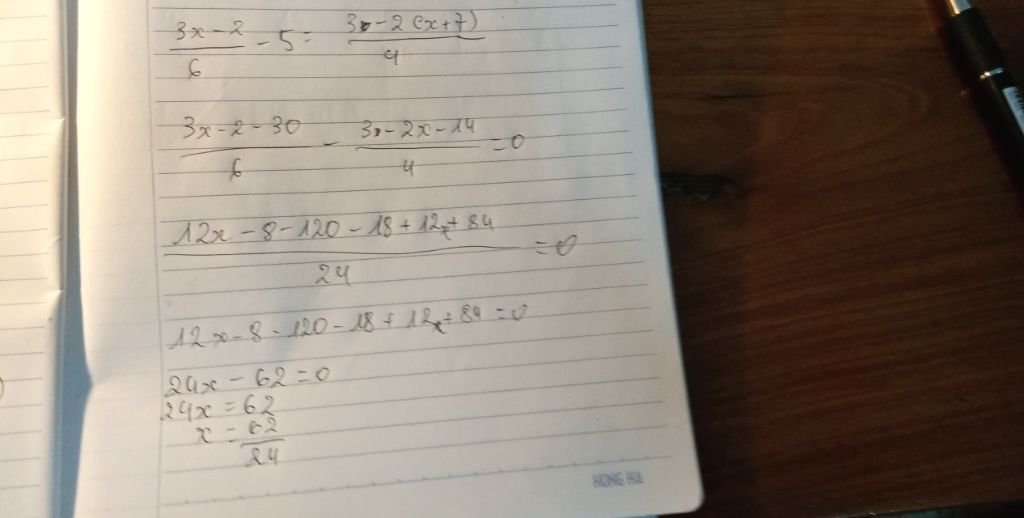 3x-2/6 - 5 = 3-2(x+7)/4
3x-2-30/6 - 3-2x-14/4 = 0
12x-8-120-18+12x+84/24 = 0
12x-8-120-18+12x+84=0
24x-62=0
24x=62
x=62/24
HONG HA